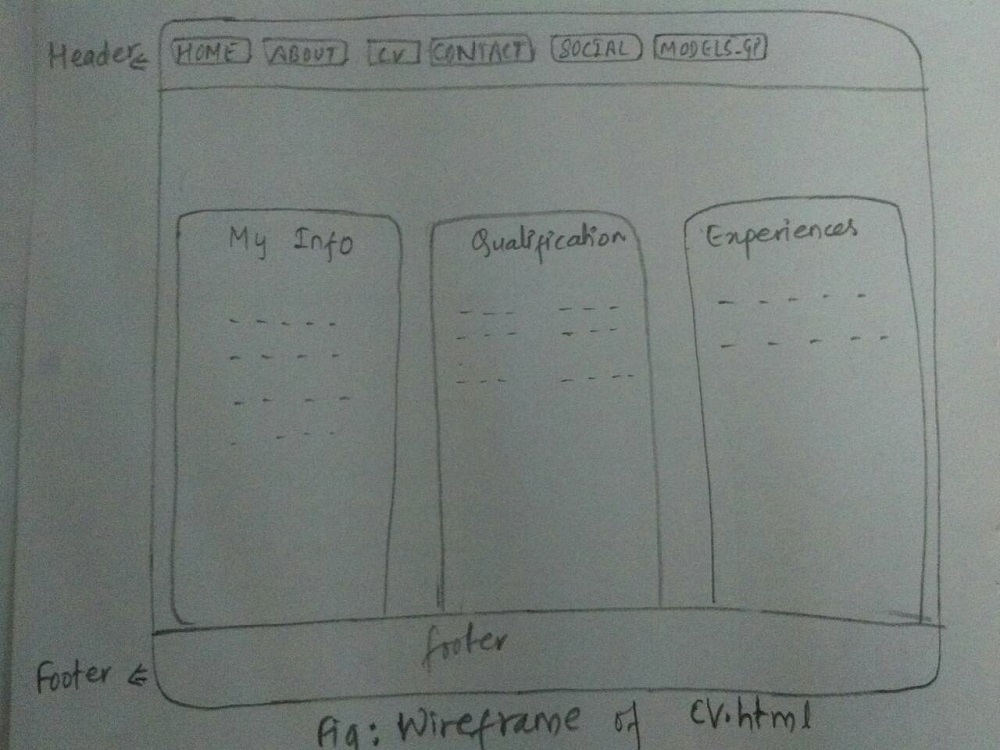 Header HOME ABOUT CV CONTACT SOCIAL MODELS-GP
My Info Qualification Experiences
footer
Footer
Fig: Wireframe of CV.html